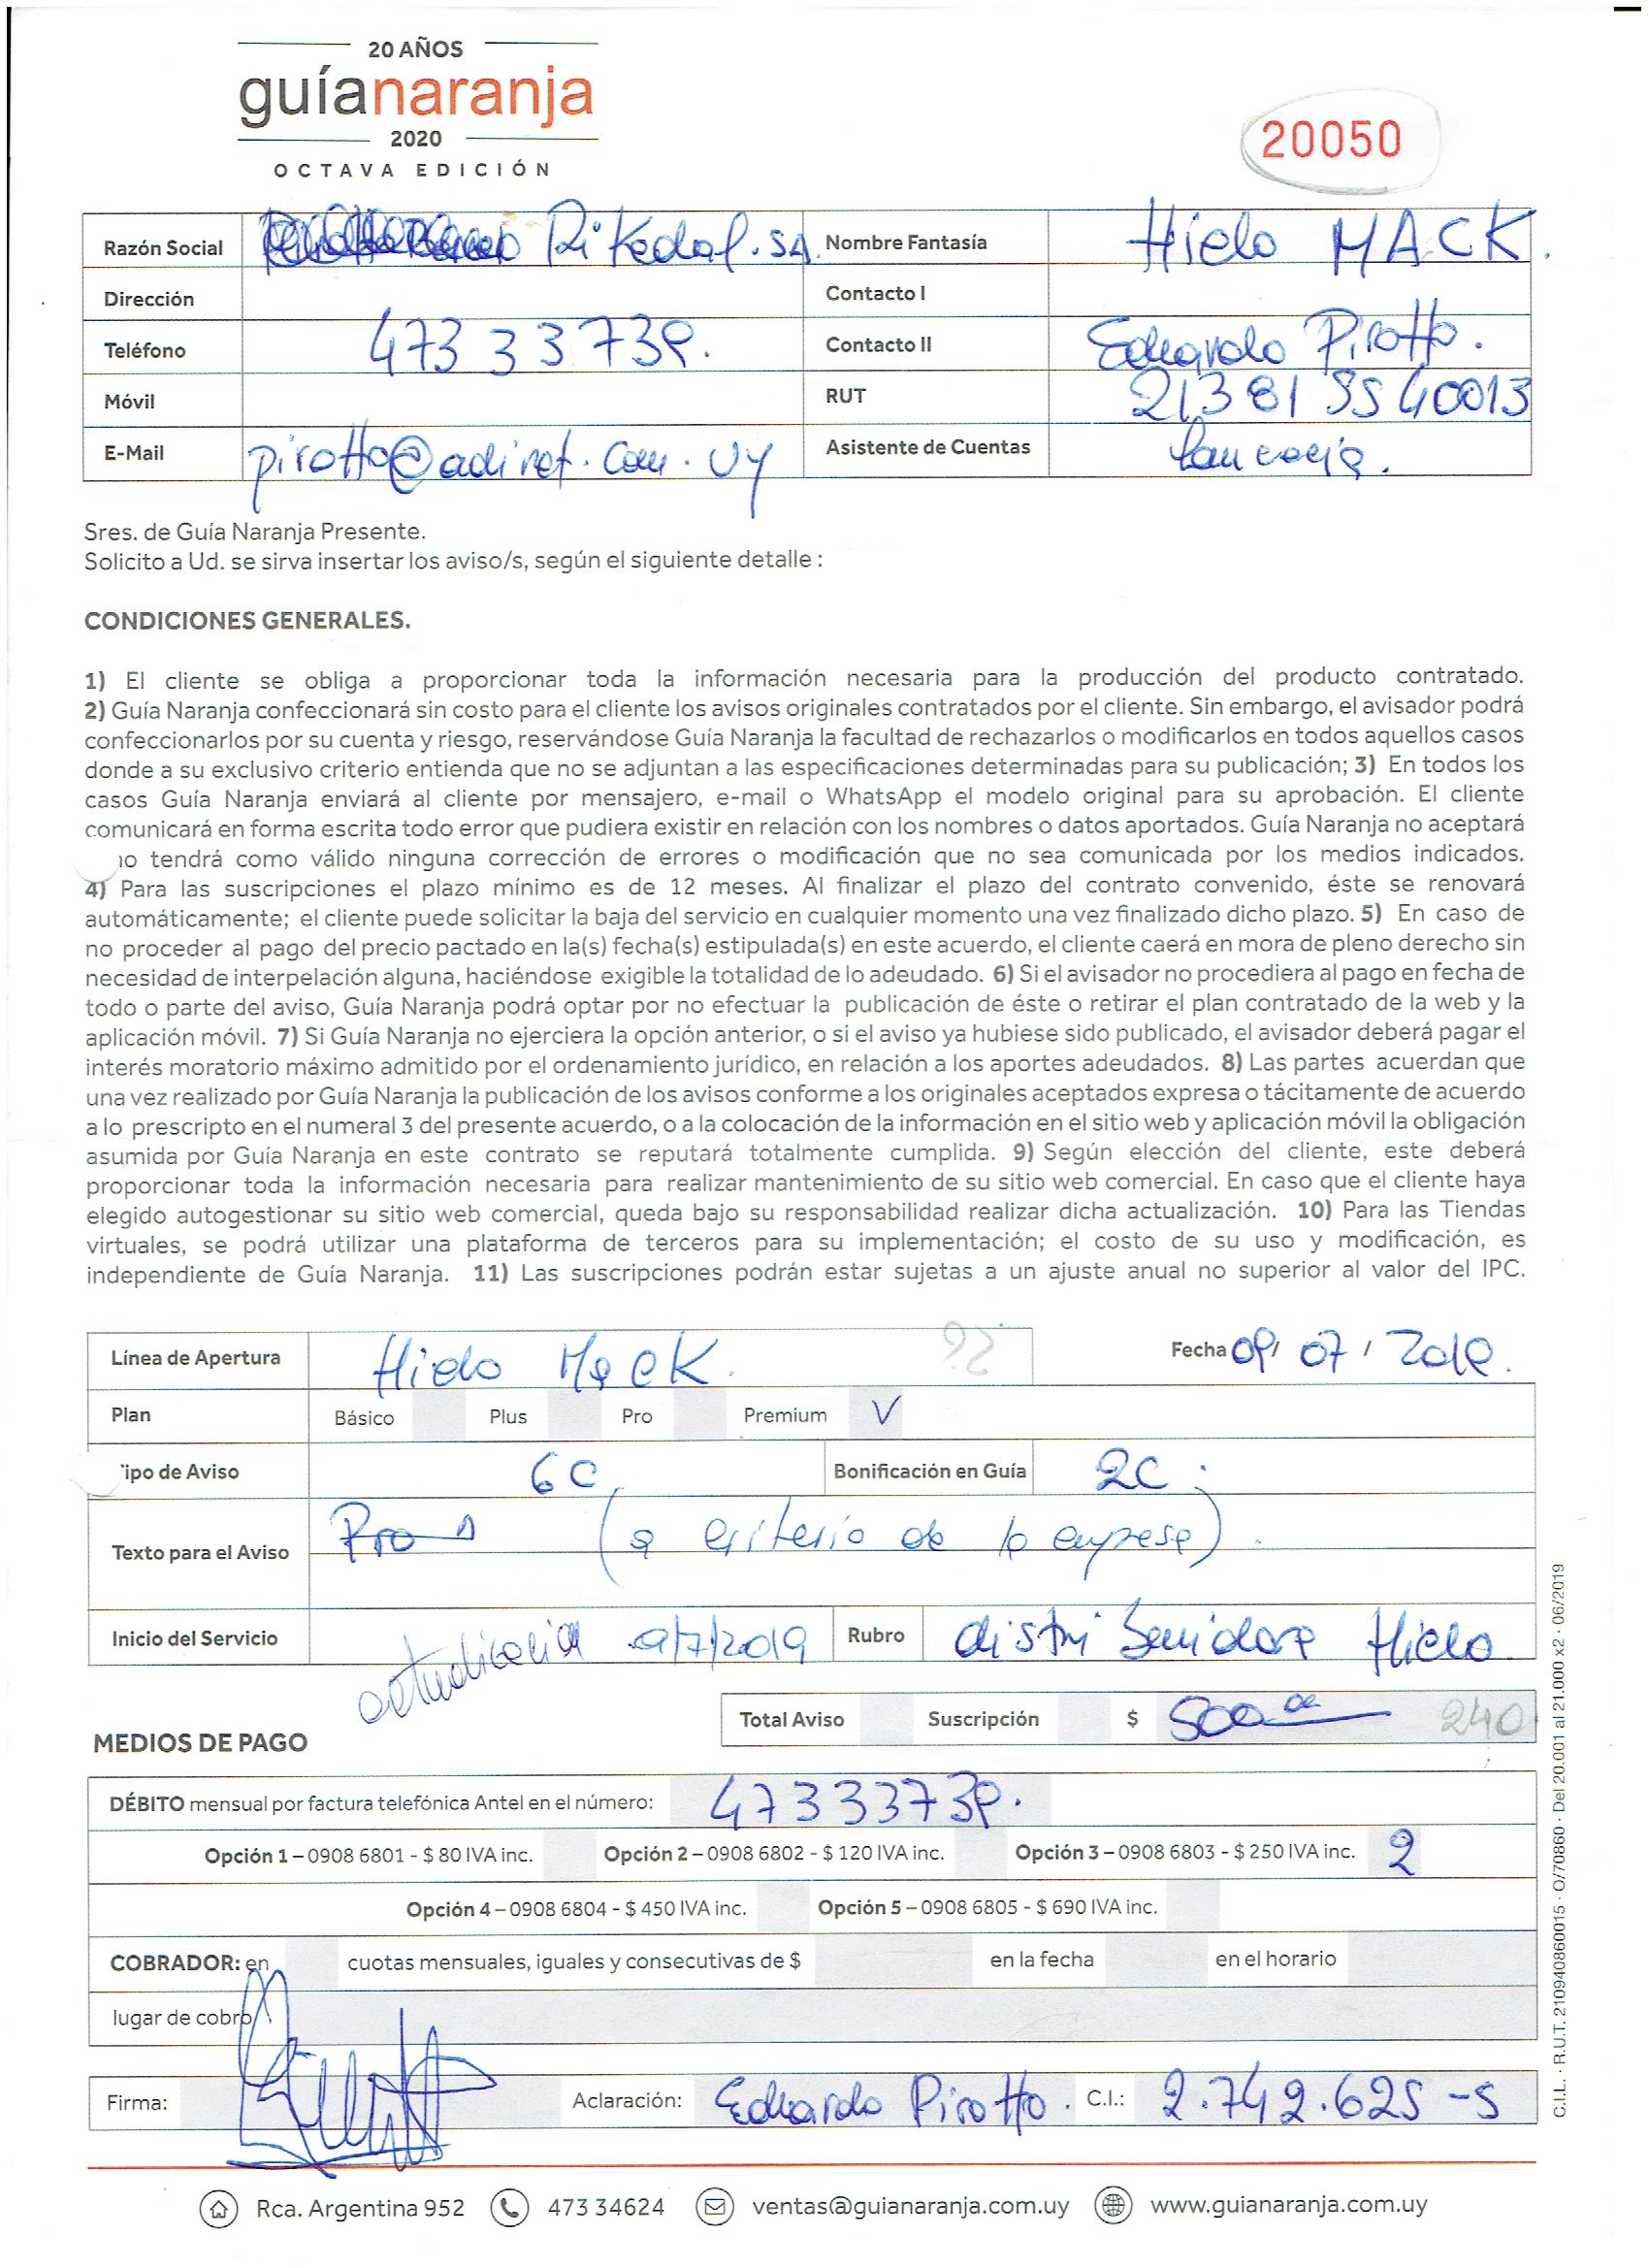 20 AÑOS
guíanaranja
2020
OCTAVA EDICIÓN
20050
Razón Social Rikedal. SA. Nombre Fantasía Hielo MACK.
Dirección Contacto I
Teléfono 473 33739. Contacto II Eduardo Pirotto.
Móvil RUT
E-Mail pirotto@adinet.com.uy Asistente de Cuentas
Sres. de Guía Naranja Presente.
Solicito a Ud. se sirva insertar los aviso/s, según el siguiente detalle :
CONDICIONES GENERALES.
1) El cliente se obliga a proporcionar toda la información necesaria para la producción del producto contratado.
2) Guía Naranja confeccionará sin costo para el cliente los avisos originales contratados por el cliente. Sin embargo, el avisador podrá
confeccionarlos por su cuenta y riesgo, reservándose Guía Naranja la facultad de rechazarlos o modificarlos en todos aquellos casos
donde a su exclusivo criterio entienda que no se adjuntan a las especificaciones determinadas para su publicación; 3) En todos los
casos Guía Naranja enviará al cliente por mensajero, e-mail o WhatsApp el modelo original para su aprobación. El cliente
comunicará en forma escrita todo error que pudiera existir en relación con los nombres o datos aportados. Guía Naranja no aceptará
tendrá como válido ninguna corrección de errores o modificación que no sea comunicada por los medios indicados.
4) Para las suscripciones el plazo mínimo es de 12 meses. Al finalizar el plazo del contrato convenido, éste se renovará
automáticamente; el cliente puede solicitar la baja del servicio en cualquier momento una vez finalizado dicho plazo. 5) En caso de
no proceder al pago del precio pactado en la(s) fecha(s) estipulada(s) en este acuerdo, el cliente caerá en mora de pleno derecho sin
necesidad de interpelación alguna, haciéndose exigible la totalidad de lo adeudado. 6) Si el avisador no procediera al pago en fecha de
todo o parte del aviso, Guía Naranja podrá optar por no efectuar la publicación de éste o retirar el plan contratado de la web y la
aplicación móvil. 7) Si Guía Naranja no ejerciera la opción anterior, o si el aviso ya hubiese sido publicado, el avisador deberá pagar el
interés moratorio máximo admitido por el ordenamiento jurídico, en relación a los aportes adeudados. 8) Las partes acuerdan que
una vez realizado por Guía Naranja la publicación de los avisos conforme a los originales aceptados expresa o tácitamente de acuerdo
a lo prescripto en el numeral 3 del presente acuerdo, o a la colocación de la información en el sitio web y aplicación móvil la obligación
asumida por Guía Naranja en este contrato se reputará totalmente cumplida. 9) Según elección del cliente, este deberá
proporcionar toda la información necesaria para realizar mantenimiento de su sitio web comercial. En caso que el cliente haya
elegido autogestionar su sitio web comercial, queda bajo su responsabilidad realizar dicha actualización. 10) Para las Tiendas
virtuales, se podrá utilizar una plataforma de terceros para su implementación; el costo de su uso y modificación, es
independiente de Guía Naranja. 11) Las suscripciones podrán estar sujetas a un ajuste anual no superior al valor del IPC.
Línea de Apertura Hielo Mack. Fecha 09/ 07 / 2019.
Plan Básico Plus Pro Premium V
ipo de Aviso 6C Bonificación en Guía 2C.
Texto para el Aviso (a criterio de la empresa).
Inicio del Servicio 9/7/2019 Rubro distribuidora Hielo.
Total Aviso Suscripción $ 500 00 240
MEDIOS DE PAGO
DÉBITO mensual por factura telefónica Antel en el número: 47333739.
Opción 1 – 0908 6801 - $ 80 IVA inc. Opción 2 – 0908 6802 - $ 120 IVA inc. Opción 3 – 0908 6803 - $ 250 IVA inc. 2
Opción 4 – 0908 6804 - $ 450 IVA inc. Opción 5 – 0908 6805 - $ 690 IVA inc.
COBRADOR: en cuotas mensuales, iguales y consecutivas de $ en la fecha en el horario
lugar de cobro
Firma: Aclaración: Eduardo Pirotto. C.I.: 2.742.625-5
Rca. Argentina 952 473 34624 ventas@guianaranja.com.uy www.guianaranja.com.uy
C.I.L. · R.U.T. 210940860015 · O/70860 · Del 20.001 al 21.000 x2 · 06/2019